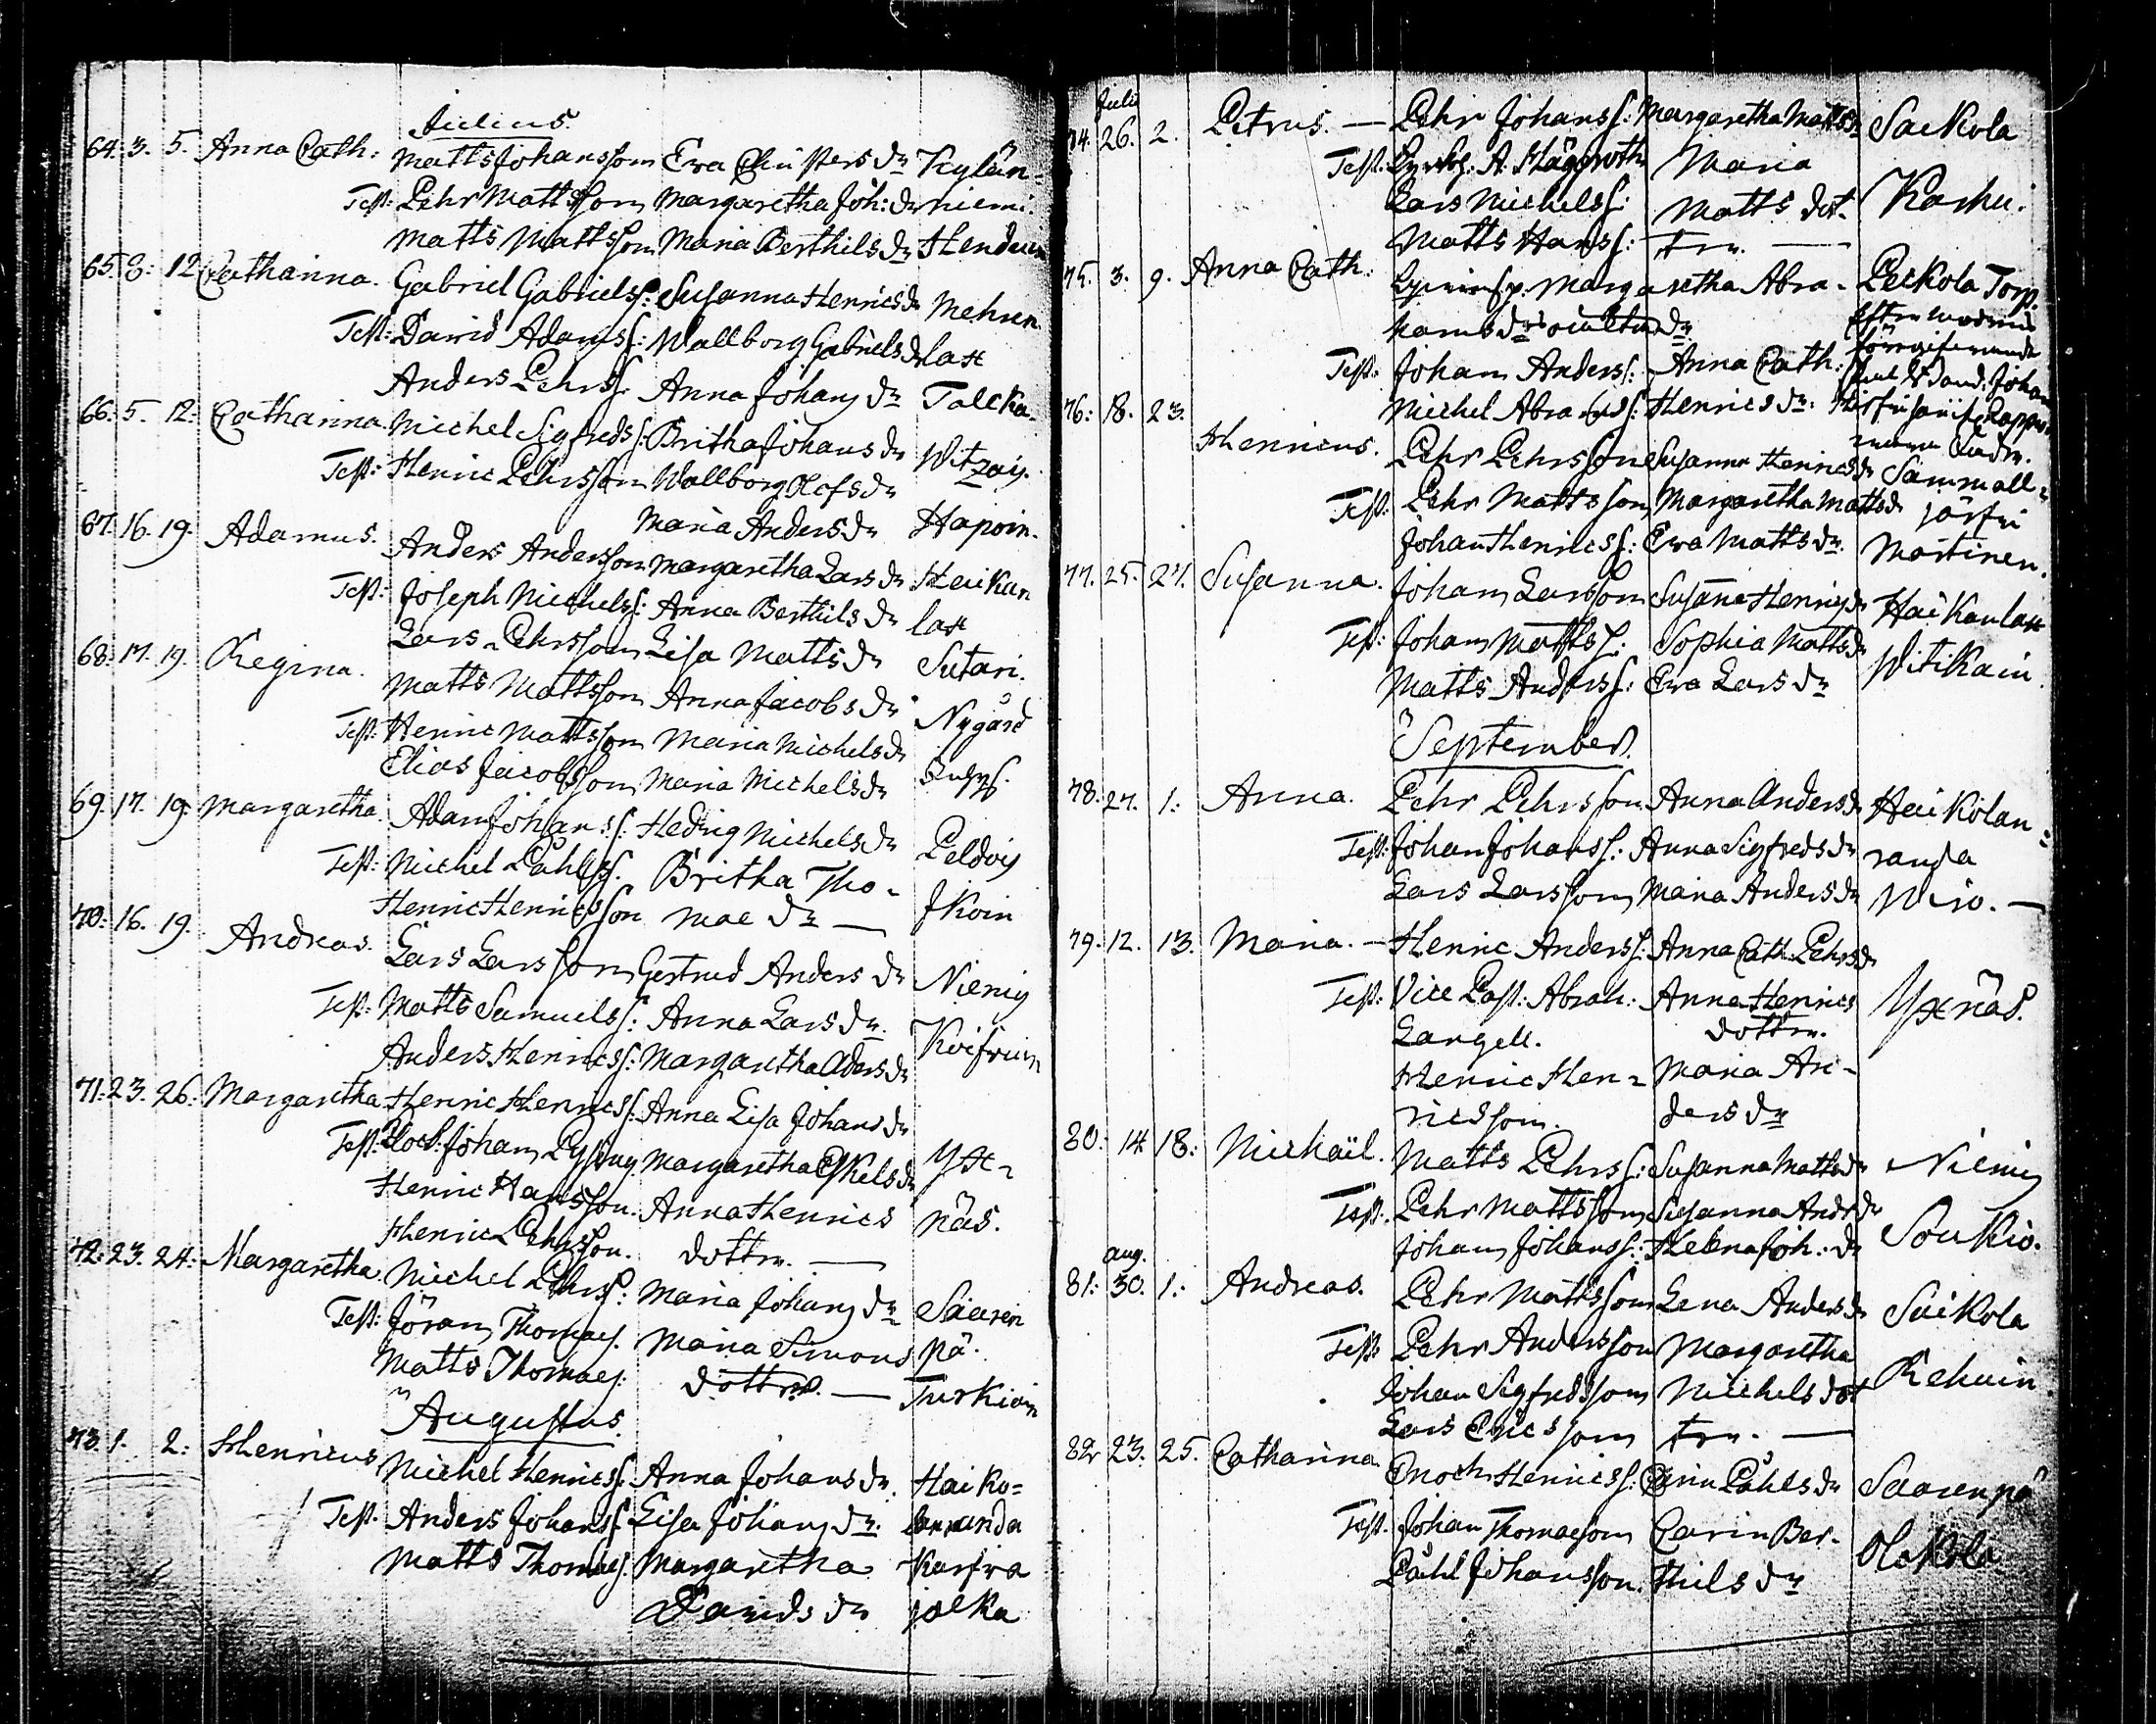 Julius.
64. 3. 5. Anna Cath: Matts Johansson Ewa Christersdr Kylän-
Test: Pehr Mattsson Margaretha Joh: dr niemi.
Matts Mattsson Maria Berthilsdr
65. 8: 12. Catharina. Gabriel Gabrielss: Susanna Henricsdr
Test: David Adamss: Wallborg Gabrielsdr
Anders Pehrss: Anna Johansdr
66. 5. 12: Catharina. Michel Sigfredss: Britha Johansdr
Test: Henric Pehrsson Wallborg Olofsdr
Maria Andersdr
67. 16. 19. Adamus. Anders Andersson Margaretha Larsdr Heikan
Test: Joseph Michelss: Anna Berthilsdr lax
Lars Pehrsson Lisa Mattsdr Sutari.
68. 17. 19. Regina. Matts Mattsson Anna Jacobsdr Nygård
Test: Henric Mattsson Maria Michelsdr
Elias Jacobsson Maria Michelsdr
69. 17. 19. Margaretha. Adam Johanss: Hedvig Michelsdr
Test: Michel Påhlss. Britha Tho-
Henric Henricsson mae dr —
70. 16. 19. Andreas. Lars Larsson Gertrud Andersdr
Test: Matts Samuelss: Anna Larsdr.
Anders Henricss: Margaretha Adersdr
71: 23. 26: Margaretha Henric Henricss: Anna Lisa Johansdr
Test: Johan Margaretha Eskelsdr Yx-
Henric Hansson. Anna Henrics näs.
Henric Pehrsson. dotter. —
72: 23. 24: Margaretha. Michel Pehrss: Maria Johansdr Saaren
Test: Jöran Thomaes. Maria Simons pä.
Matts Thomaes. dotter. — Turkion
Augustus.
73. 1. 2: Henricus Michel Henricss: Anna Johansdr. Haiko-
Test. Anders Johanss: Lisa Johansdr. lanranda
Matts Thomaes. Margaretha Karfva
Davidsdr jalka
Julii
74. 26. 2. Petrus. — Pehr Johanss: Margaretha Mattsdr Saikola
Test: A. Hägeroth Maria
Lars Michelss: Matts dot- Karhu.
Matts Hanss: ter. —
75. 3. 9. Anna Cath: Margaretha Abra- Peikola Torp.
hamsdrs dr.
Test: Johan Anderss: Anna Cath:
Michel Abrahss: Henricsdr.
76: 18. 23. Henricus. Pehr Pehrsson Susanna Henricsdr Sammall-
Test: Pehr Mattsson Margaretha Mattsdr järfvi
Johan Henricss: Ewa Mattsdr. Martinen.
77. 25. 27. Susanna. Johan Larsson Susanna Henricsdr Haikanlax
Test: Johan Mattss: Sophia Mattsdr Witikain
Matts Anderss: Ewa Larsdr
September.
78. 27. 1: Anna. Pehr Pehrsson Anna Andersdr Haikolan-
Test: Johan Johanss: Anna Sigfredsdr randa
Lars Larsson Maria Andersdr Wiro. —
79. 12. 13. Maria. — Henric Anderss: Anna Cath. Pehrsdr
Test: Vice Past: Abrah: Anna Henrics Yxnäs.
Langell. dotter.
Henric Hen- Maria An-
ricsson. dersdr
80: 14 18: Michaël. Matts Pehrss: Susanna Mattsdr
Test. Pehr Mattsson Susanna Andrdr Soukio.
Johan Johanss: Helena Joh: dr
aug.
81: 30. 1: Andreas. Pehr Mattsson Lena Andersdr Saikola
Test: Pehr Andersson Margaretha
Johan Sigfredsson Michels dot Rehuin
Lars Ericsson ter. —
82. 23. 25. Catharina. Enoch Henricss: Carin Påhlsdr Saarenpä
Test. Johan Thomaeson Carin Ber-
Påhl Johansson. thilsdr